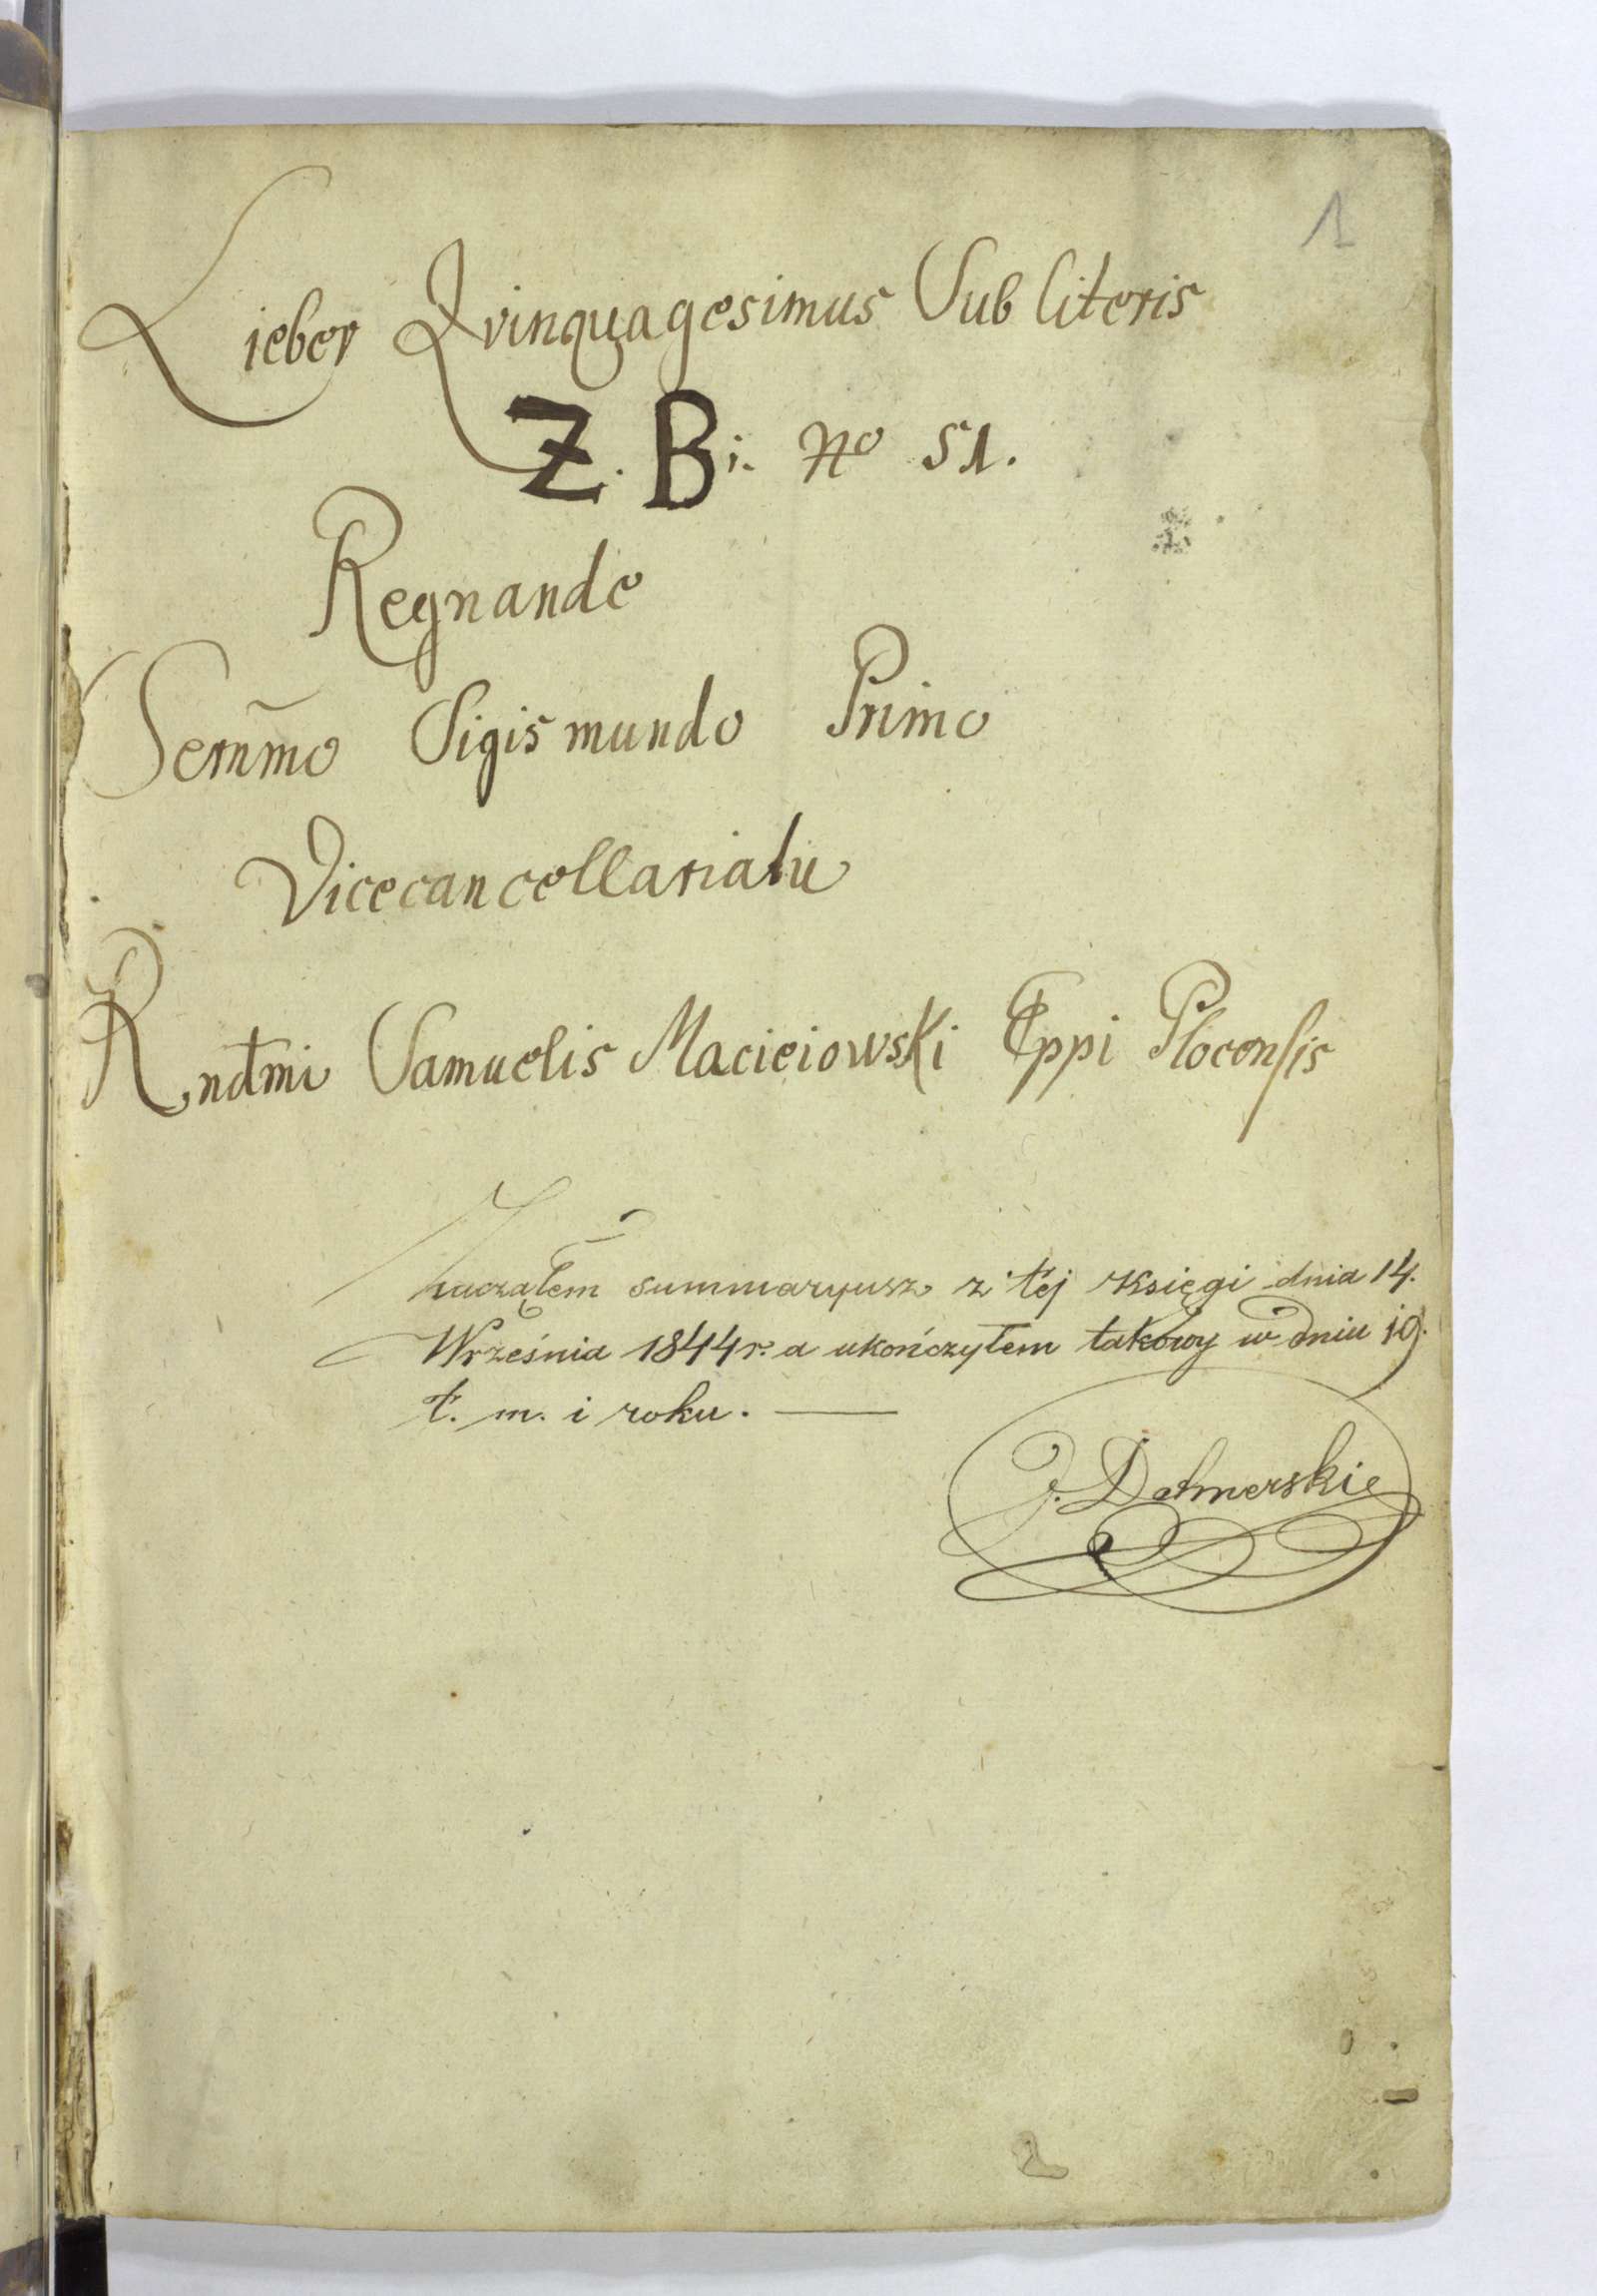 1
Lieber Qvinquagesimus Sub literis
Z. B: No 51.
Regnando
Sernmo Sigismundo Primo
Vicecancellariatu
Rndmi Samuelis Macieiowski Eppi Plocensis
Zacząłem summaryusz z tej Księgi dnia 14.
Września 1844 r. a ukończyłem takowy w dniu 19.
t. m. i roku. —